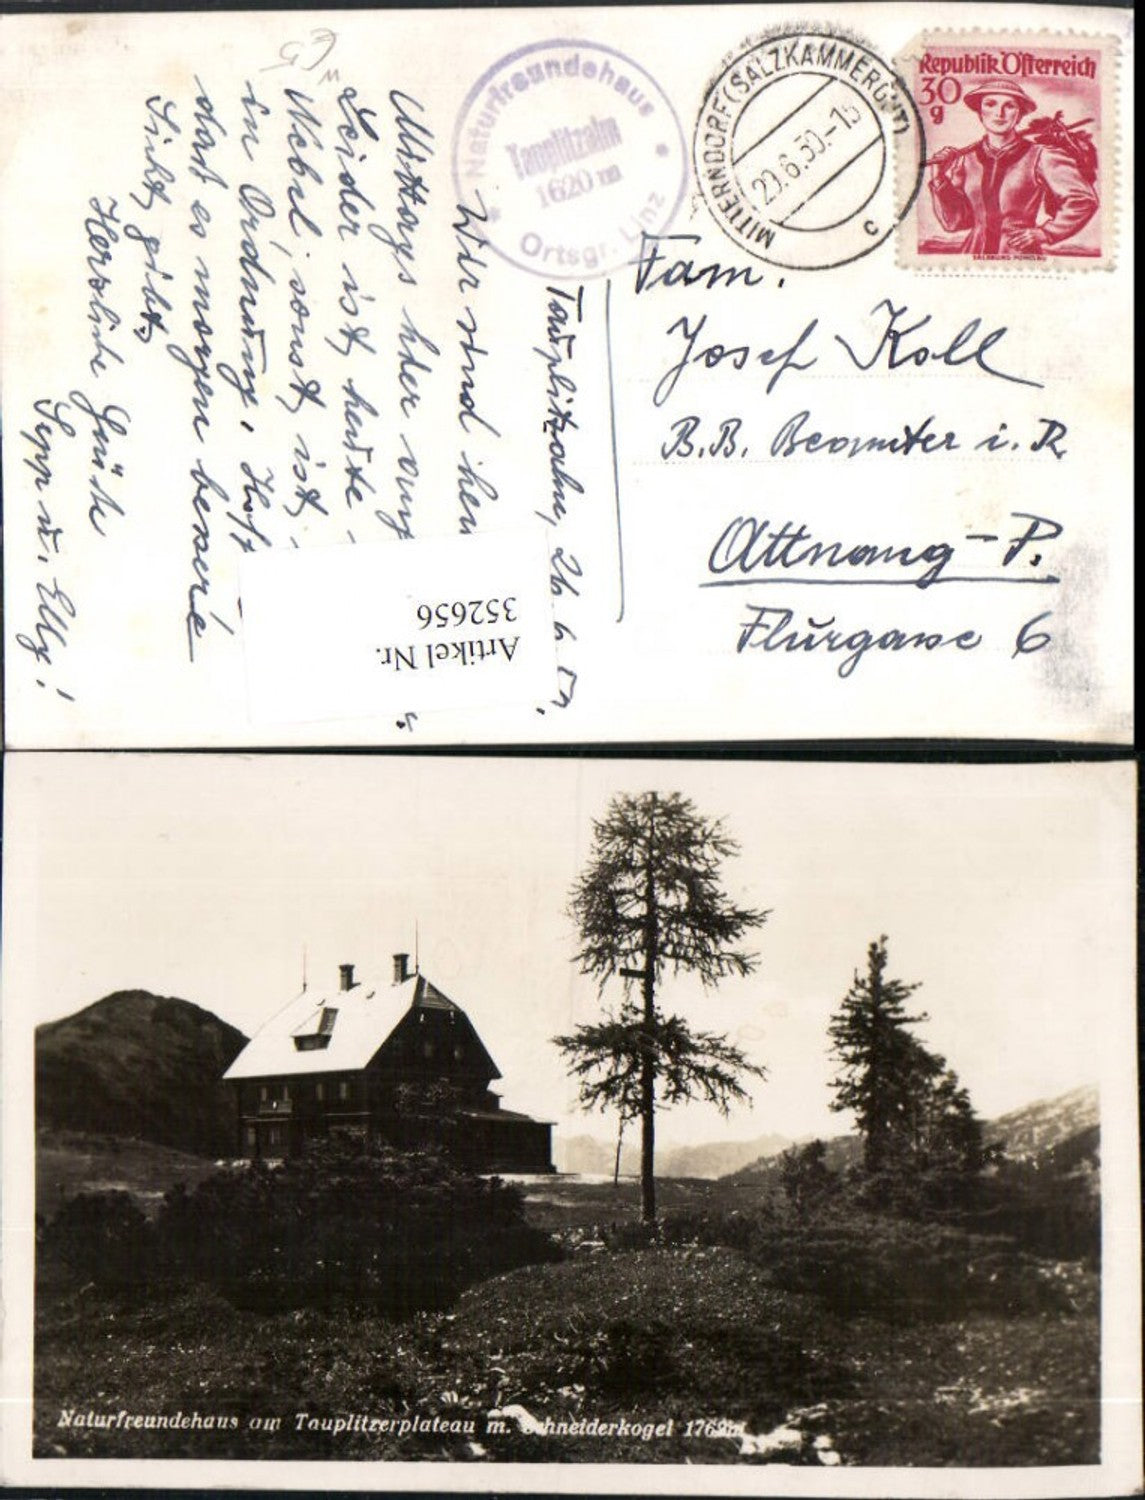 Naturfreundehaus
Tauplitzalm
1620 m
Ortsgr. Linz
MITTERNDORF (SALZKAMMERGUT)
c
Republik Österreich
30
g
SALZBURG-PONGAU
Tauplitzalm, 26 6
Wir sind
Mittags hier
Leider ist heute
Nebel, sonst ist
in Ordnung. Hoff
das es morgen besseré
Sicht gibt
Herzliche Grüße
Sepp u. Elly!
Fam.
Josef Koll
B.B. Beamter i. R.
Attnang-P.
Flurgasse 6
Artikel Nr.
352656
Naturfreundehaus am Tauplitzerplateau m. Schneiderkogel 1762m